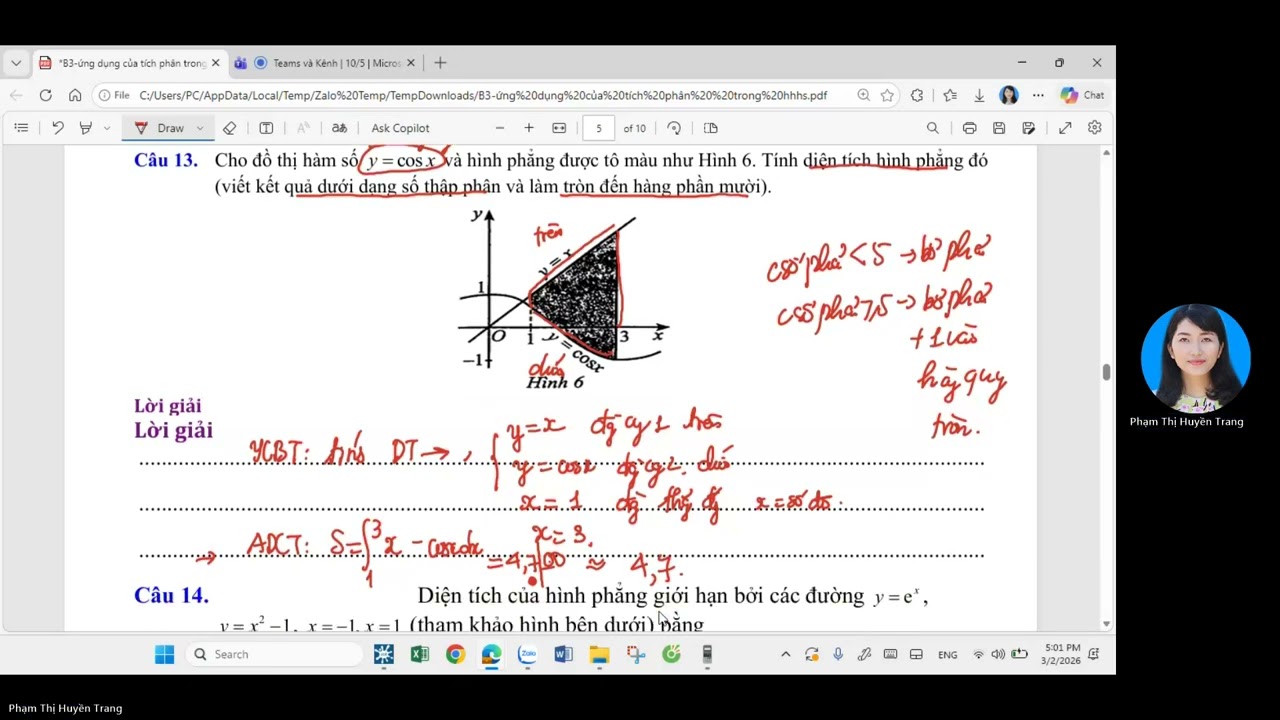 *B3-ứng dụng của tích phân trong
Teams và Kênh | 10/5 | Micros
File
C:/Users/PC/AppData/Local/Temp/Zalo%20Temp/TempDownloads/B3-ứng%20dụng%20của%20tích%20phân%20%20trong%20hhhs.pdf
Chat
Draw
Ask Copilot
5 of 10
Câu 13. Cho đồ thị hàm số y = cos x và hình phẳng được tô màu như Hình 6. Tính diện tích hình phẳng đó
(viết kết quả dưới dạng số thập phân và làm tròn đến hàng phần mười).
y
trên
y = x
1
O
1
3
x
−1
y = cosx
dưới
Hình 6
csố phải < 5 → bỏ phải
csố phải ≥ 5 → bỏ phải
+ 1 vào
hàng quy
tròn.
Lời giải
Lời giải
YCBT: hình DT →
y = x đg cg 1 trên
y = cosx đg cg 2 dưới
x = 1 đg thg đg x = số đo
x = 3.
→ ADCT: S = ∫₁³ x − cosx dx = 4,700 ≈ 4,7.
Câu 14. Diện tích của hình phẳng giới hạn bởi các đường y = eˣ,
y = x² − 1, x = −1, x = 1 (tham khảo hình bên dưới) bằng
Search
ENG
5:01 PM
3/2/2026
Phạm Thị Huyền Trang
Phạm Thị Huyền Trang